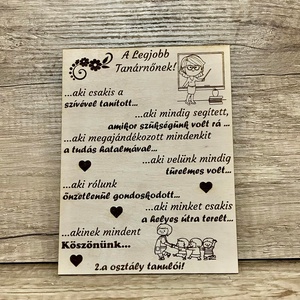 A Legjobb
Tanárnőnek!
...aki csakis a
szívével tanított...
...aki mindig segített,
amikor szükségünk volt rá ...
...aki megajándékozott mindenkit
a tudás hatalmával...
...aki velünk mindig
türelmes volt...
...aki rólunk
önzetlenül gondoskodott...
...aki minket csakis
a helyes útra terelt...
...akinek mindent
Köszönünk...
2.a osztály tanulói!